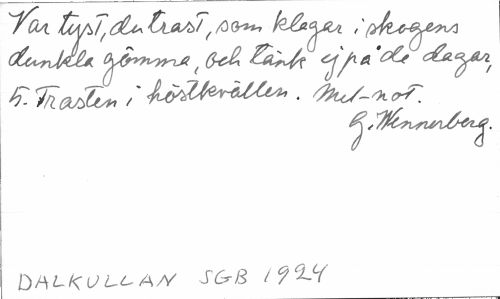 Var tyst, du trast, som klagar i skogens
dunkla gömma, och tänk ej på de dagar,
5. Trasten i höstkvällen. Mel-not.
G. Wennerberg.
DALKULLAN SGB 1924